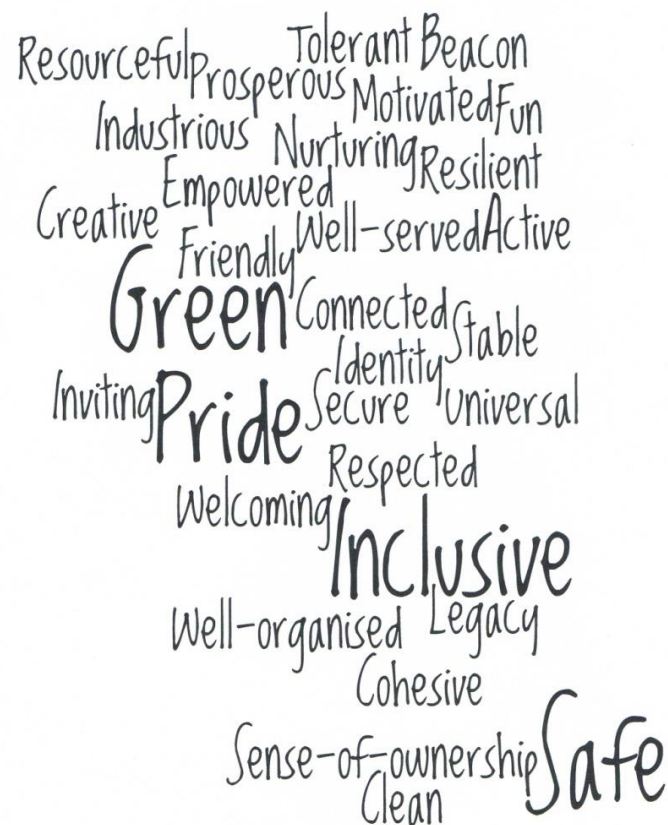 Resourceful Prosperous Tolerant Beacon
Industrious Motivated Fun
Nurturing Resilient
Creative Empowered
Friendly Well-served Active
Green Connected Stable
Identity
Inviting Pride Secure Universal
Respected
Welcoming Inclusive
Well-organised Legacy
Cohesive
Sense-of-ownership Safe
Clean